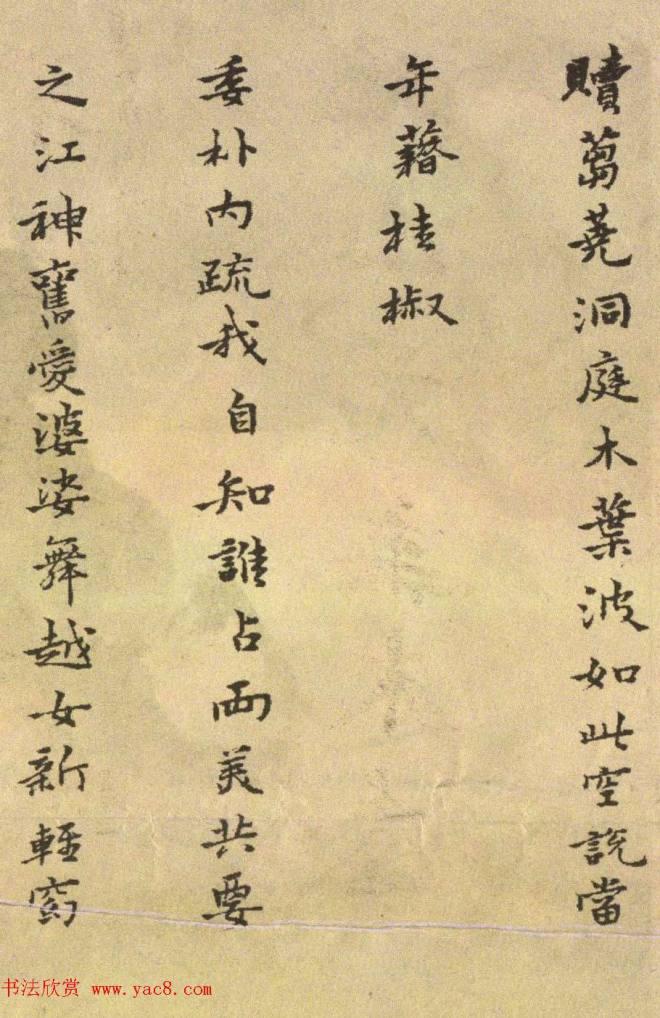 贖蒭蕘洞庭木葉波如此空説當
年藉桂椒
委朴内疏我自知誰占兩美共要
之江神舊愛婆娑舞越女新輕窈
书法欣赏 www.yac8.com